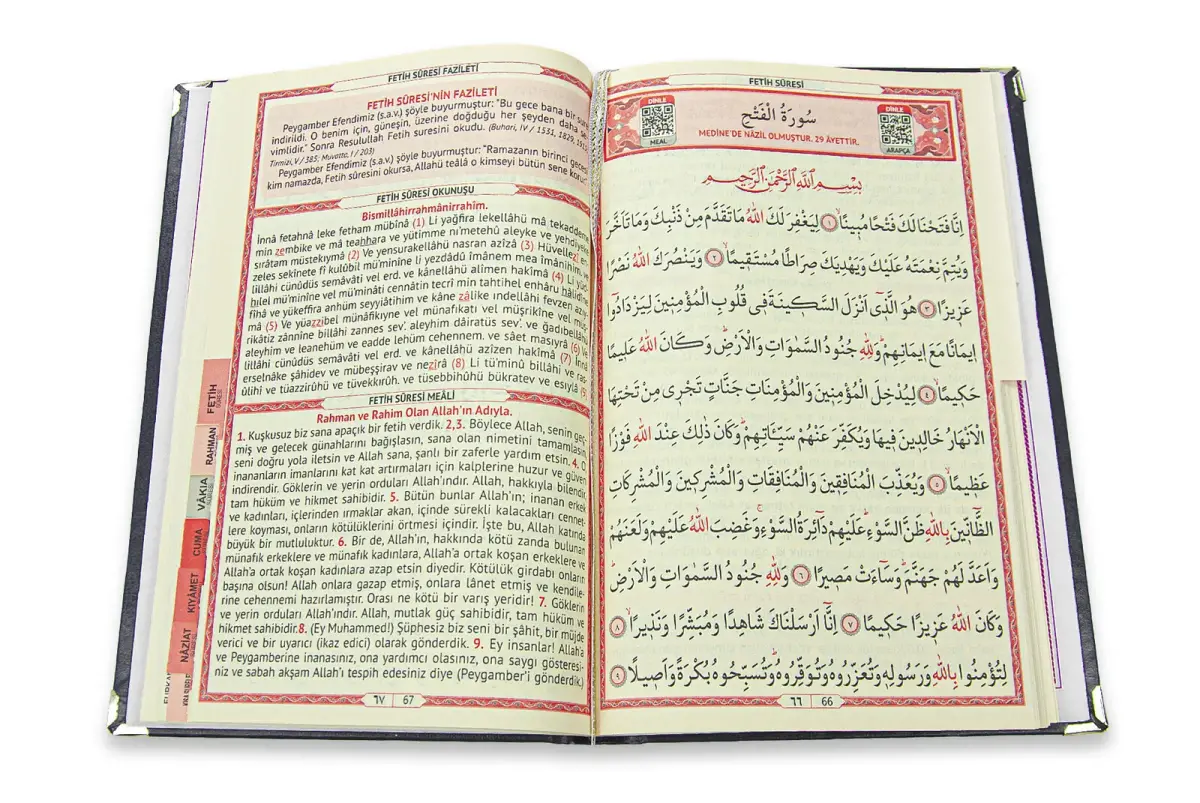 FETİH SÛRESİ
DİNLE
MEAL
سُورَةُ الْفَتْحِ
MEDİNE'DE NÂZİL OLMUŞTUR. 29 ÂYETTİR.
DİNLE
ARAPÇA
بِسْمِ اللّٰهِ الرَّحْمٰنِ الرَّحِيمِ
اِنَّا فَتَحْنَا لَكَ فَتْحًا مُبِينًاۙ ﴿١﴾ لِيَغْفِرَ لَكَ اللّٰهُ مَا تَقَدَّمَ مِنْ ذَنْبِكَ وَمَا تَاَخَّرَ
وَيُتِمَّ نِعْمَتَهُ عَلَيْكَ وَيَهْدِيَكَ صِرَاطًا مُسْتَقِيمًاۙ ﴿٢﴾ وَيَنْصُرَكَ اللّٰهُ نَصْرًا
عَزِيزًا ﴿٣﴾ هُوَ الَّذٓي اَنْزَلَ السَّكِينَةَ فِي قُلُوبِ الْمُؤْمِنِينَ لِيَزْدَادُٓوا
اِيمَانًا مَعَ اِيمَانِهِمْۜ وَلِلّٰهِ جُنُودُ السَّمٰوَاتِ وَالْاَرْضِۜ وَكَانَ اللّٰهُ عَلِيمًا
حَكِيمًاۙ ﴿٤﴾ لِيُدْخِلَ الْمُؤْمِنِينَ وَالْمُؤْمِنَاتِ جَنَّاتٍ تَجْرِي مِنْ تَحْتِهَا
الْاَنْهَارُ خَالِدِينَ فِيهَا وَيُكَفِّرَ عَنْهُمْ سَيِّـَٔاتِهِمْۜ وَكَانَ ذٰلِكَ عِنْدَ اللّٰهِ فَوْزًا
عَظِيمًاۙ ﴿٥﴾ وَيُعَذِّبَ الْمُنَافِقِينَ وَالْمُنَافِقَاتِ وَالْمُشْرِكِينَ وَالْمُشْرِكَاتِ
الظَّٓانِّينَ بِاللّٰهِ ظَنَّ السَّوْءِۜ عَلَيْهِمْ دَٓائِرَةُ السَّوْءِۚ وَغَضِبَ اللّٰهُ عَلَيْهِمْ وَلَعَنَهُمْ
وَاَعَدَّ لَهُمْ جَهَنَّمَۜ وَسَٓاءَتْ مَصِيرًا ﴿٦﴾ وَلِلّٰهِ جُنُودُ السَّمٰوَاتِ وَالْاَرْضِۜ
وَكَانَ اللّٰهُ عَزِيزًا حَكِيمًا ﴿٧﴾ اِنَّٓا اَرْسَلْنَاكَ شَاهِدًا وَمُبَشِّرًا وَنَذِيرًاۙ ﴿٨﴾
لِتُؤْمِنُوا بِاللّٰهِ وَرَسُولِهِ وَتُعَزِّرُوهُ وَتُوَقِّرُوهُۜ وَتُسَبِّحُوهُ بُكْرَةً وَاَصِيلًا ﴿٩﴾
٦٦ 66
FETİH SÛRESİ FAZİLETİ
FETİH SÛRESİ'NİN FAZİLETİ
Peygamber Efendimiz (s.a.v.) şöyle buyurmuştur: "Bu gece bana bir sure
indirildi. O benim için, güneşin, üzerine doğduğu her şeyden daha se-
vimlidir." Sonra Resulullah Fetih suresini okudu. (Buhari, IV / 1531, 1829, 1915;
Tirmizi, V / 385; Muvatta, I / 203)
Peygamber Efendimiz (s.a.v.) şöyle buyurmuştur: "Ramazanın birinci gecesi
kim namazda, Fetih sûresini okursa, Allahü teâlâ o kimseyi bütün sene korur."
FETİH SÛRESİ OKUNUŞU
Bismillâhirrahmânirrahîm.
İnnâ fetahnâ leke fetham mübînâ (1) Li yağfira lekellâhü mâ tekaddeme
min zembike ve mâ teahhara ve yütimme nı'metehû aleyke ve yehdiyeke
sırâtam müstekıymâ (2) Ve yensurakellâhü nasran azîzâ (3) Hüvellezî en-
zeles sekînete fî kulûbil mü'minîne li yezdâdû îmânem mea îmânihim, ve
lillâhi cünûdüs semâvâti vel erd. ve kânellâhü alîmen hakîmâ (4) Li yüd-
hılel mü'minîne vel mü'minâti cennâtin tecrî min tahtihel enhâru hâlidîne
fîhâ ve yükeffira anhüm seyyiâtihim ve kâne zâlike ındellâhi fevzen azıy-
mâ (5) Ve yüazzibel münâfikıyne vel münafikati vel müşrikîne vel müş-
rikâtiz zânnîne billâhi zannes sev'. aleyhim dâiratüs sev'. ve ğadıbellâhü
aleyhim ve leanehüm ve eadde lehüm cehennem. ve sâet masıyrâ (6) Ve
lillâhi cünûdüs semâvâti vel erd. ve kânellâhü azîzen hakîmâ (7) İnnâ
erselnâke şâhidev ve mübeşşirav ve nezîrâ (8) Li tü'minû billâhi ve ra-
sûlihî ve tüazzirûhü ve tüvekkırûh. ve tüsebbihûhü bükratev ve esıylâ (9)
FETİH SÛRESİ MEÂLİ
Rahman ve Rahim Olan Allah'ın Adıyla.
1. Kuşkusuz biz sana apaçık bir fetih verdik. 2,3. Böylece Allah, senin geç-
miş ve gelecek günahlarını bağışlasın, sana olan nimetini tamamlasın,
seni doğru yola iletsin ve Allah sana, şanlı bir zaferle yardım etsin. 4. O
inananların imanlarını kat kat artırmaları için kalplerine huzur ve güven
indirendir. Göklerin ve yerin orduları Allah'ındır. Allah, hakkıyla bilendir,
tam hüküm ve hikmet sahibidir. 5. Bütün bunlar Allah'ın; inanan erkek
ve kadınları, içlerinden ırmaklar akan, içinde sürekli kalacakları cennet-
lere koyması, onların kötülüklerini örtmesi içindir. İşte bu, Allah katında
büyük bir mutluluktur. 6. Bir de, Allah'ın, hakkında kötü zanda bulunan
münafık erkeklere ve münafık kadınlara, Allah'a ortak koşan erkeklere ve
Allah'a ortak koşan kadınlara azap etsin diyedir. Kötülük girdabı onların
başına olsun! Allah onlara gazap etmiş, onlara lânet etmiş ve kendile-
rine cehennemi hazırlamıştır. Orası ne kötü bir varış yeridir! 7. Göklerin
ve yerin orduları Allah'ındır. Allah, mutlak güç sahibidir, tam hüküm ve
hikmet sahibidir.8. (Ey Muhammed!) Şüphesiz biz seni bir şâhit, bir müjde
verici ve bir uyarıcı (ikaz edici) olarak gönderdik. 9. Ey insanlar! Allah'a
ve Peygamberine inanasınız, ona yardımcı olasınız, ona saygı gösteresi-
niz ve sabah akşam Allah'ı tespih edesiniz diye (Peygamber'i gönderdik.)
٦٧ 67
FETİH
RAHMAN
VÂKIA
CUMA
KIYÂMET
NÂZİÂT